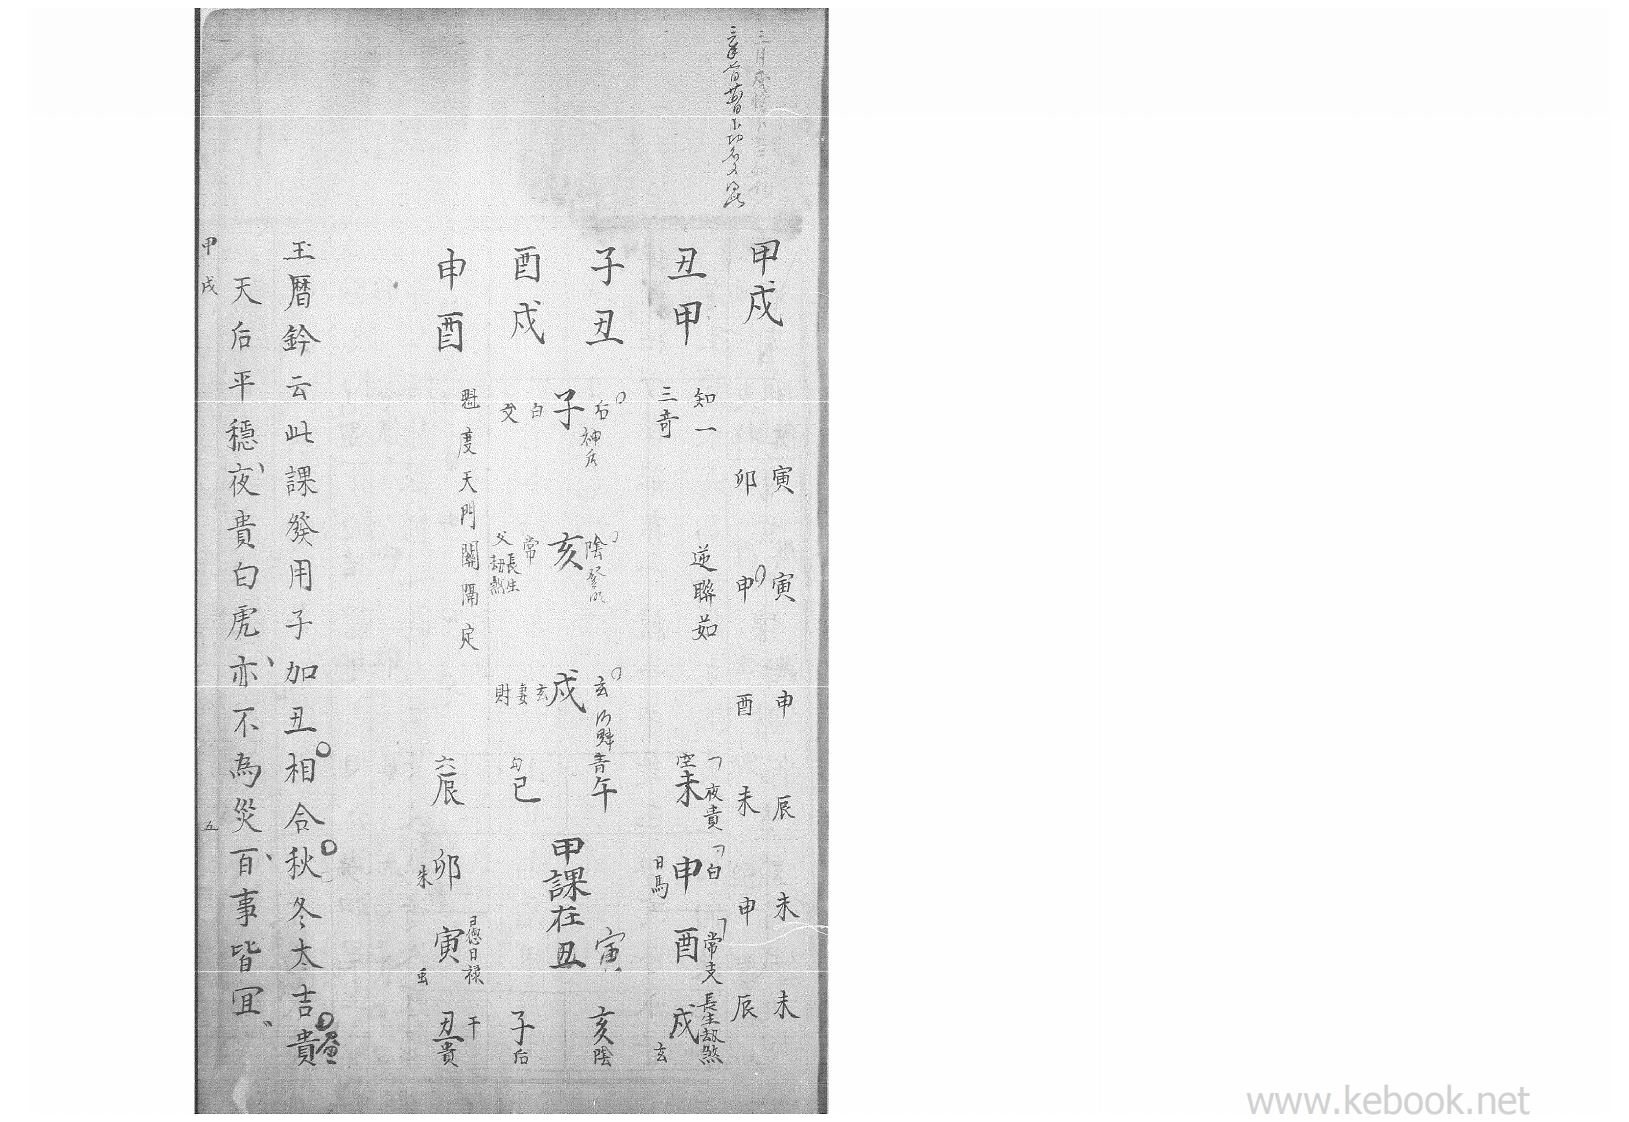 甲戌
丑甲
子丑
酉戌
申酉
寅 寅 申 辰 未 未
卯 申 酉 未 申 辰
知一 逆聯茹
三奇
后 神后
子 白 父
陰 登明
亥 常 父 長生 劫煞
玄 河魁
戌 玄 妻財
魁度天門關隔定
空 未 夜貴
申 白 日馬
酉 常 支
戌 玄 長生劫煞
青 午
勾 巳
六 辰
卯 朱
寅 日德日祿
丑 干 貴
子 后
亥 陰
甲課在丑 寅
玉曆鈐云此課發用子加丑相合秋冬太吉晝貴
天后平穩夜貴白虎亦不為災百事皆宜
甲戌
五
www.kebook.net